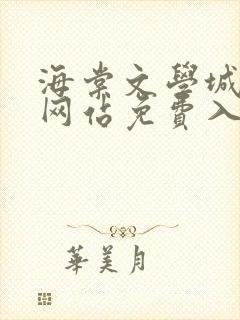 海棠文學城
网站免費入
華美月